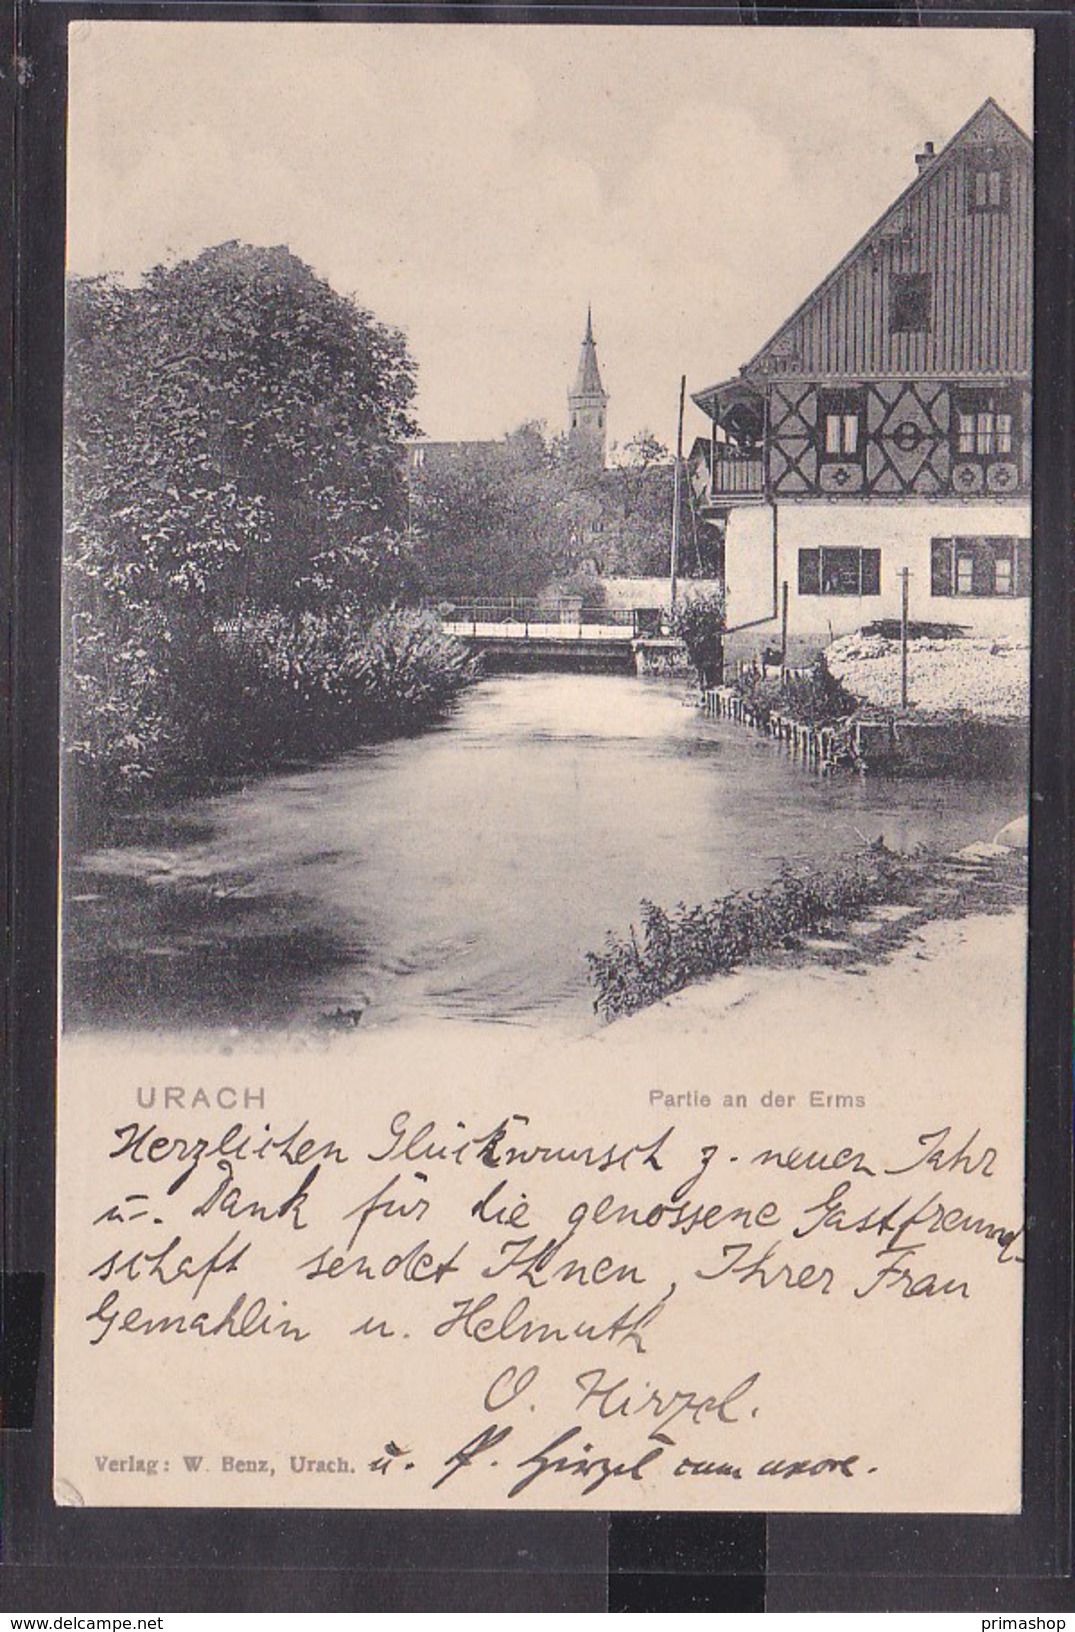 URACH
Partie an der Erms
Herzlichen Glückwunsch z. neuen Jahr
u. Dank für die genossene Gastfreund-
schaft sendet Ihnen, Ihrer Frau
Gemahlin u. Helmuth
O. Hirzel.
u. P. Hirzel cum uxore.
Verlag: W. Benz, Urach.
www.delcampe.net
primashop